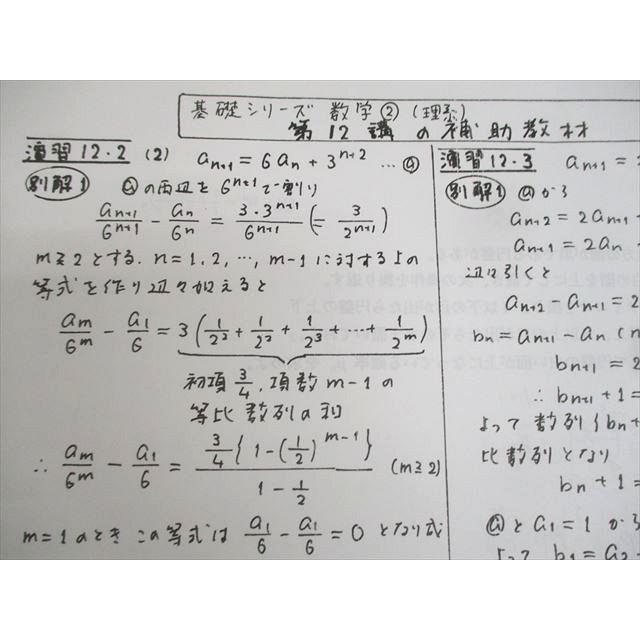 基礎シリーズ 数学② (理系)
第12講の補助教材
演習12・2 (2) aₙ₊₁ = 6aₙ + 3ⁿ⁺² …ⓐ
別解1 ⓐの両辺を6ⁿ⁺¹で割り
aₙ₊₁/6ⁿ⁺¹ - aₙ/6ⁿ = 3・3ⁿ⁺¹/6ⁿ⁺¹ (= 3/2ⁿ⁺¹)
m≧2とする. n=1,2,…,m-1に対する上の
等式を作り辺々加えると
aₘ/6ᵐ - a₁/6 = 3(1/2² + 1/2² + 1/2³ + … + 1/2ᵐ)
初項3/4,項数m-1の
等比数列の和
∴ aₘ/6ᵐ - a₁/6 = 3/4{1-(1/2)ᵐ⁻¹}/1-1/2 (m≧2)
m=1のとき この等式は a₁/6 - a₁/6 = 0 となり式
演習12・3 aₙ₊₁ =
別解1 ⓐから
aₙ₊₂ = 2aₙ₊₁
aₙ₊₁ = 2aₙ
辺々引くと
aₙ₊₂ - aₙ₊₁ = 2
bₙ = aₙ₊₁ - aₙ (n
bₙ₊₁ = 2
∴ bₙ₊₁ + 1 =
よって 数列{bₙ+
比数列となり
bₙ + 1 =
ⓐとa₁=1から
よって b₁ = a₂ -